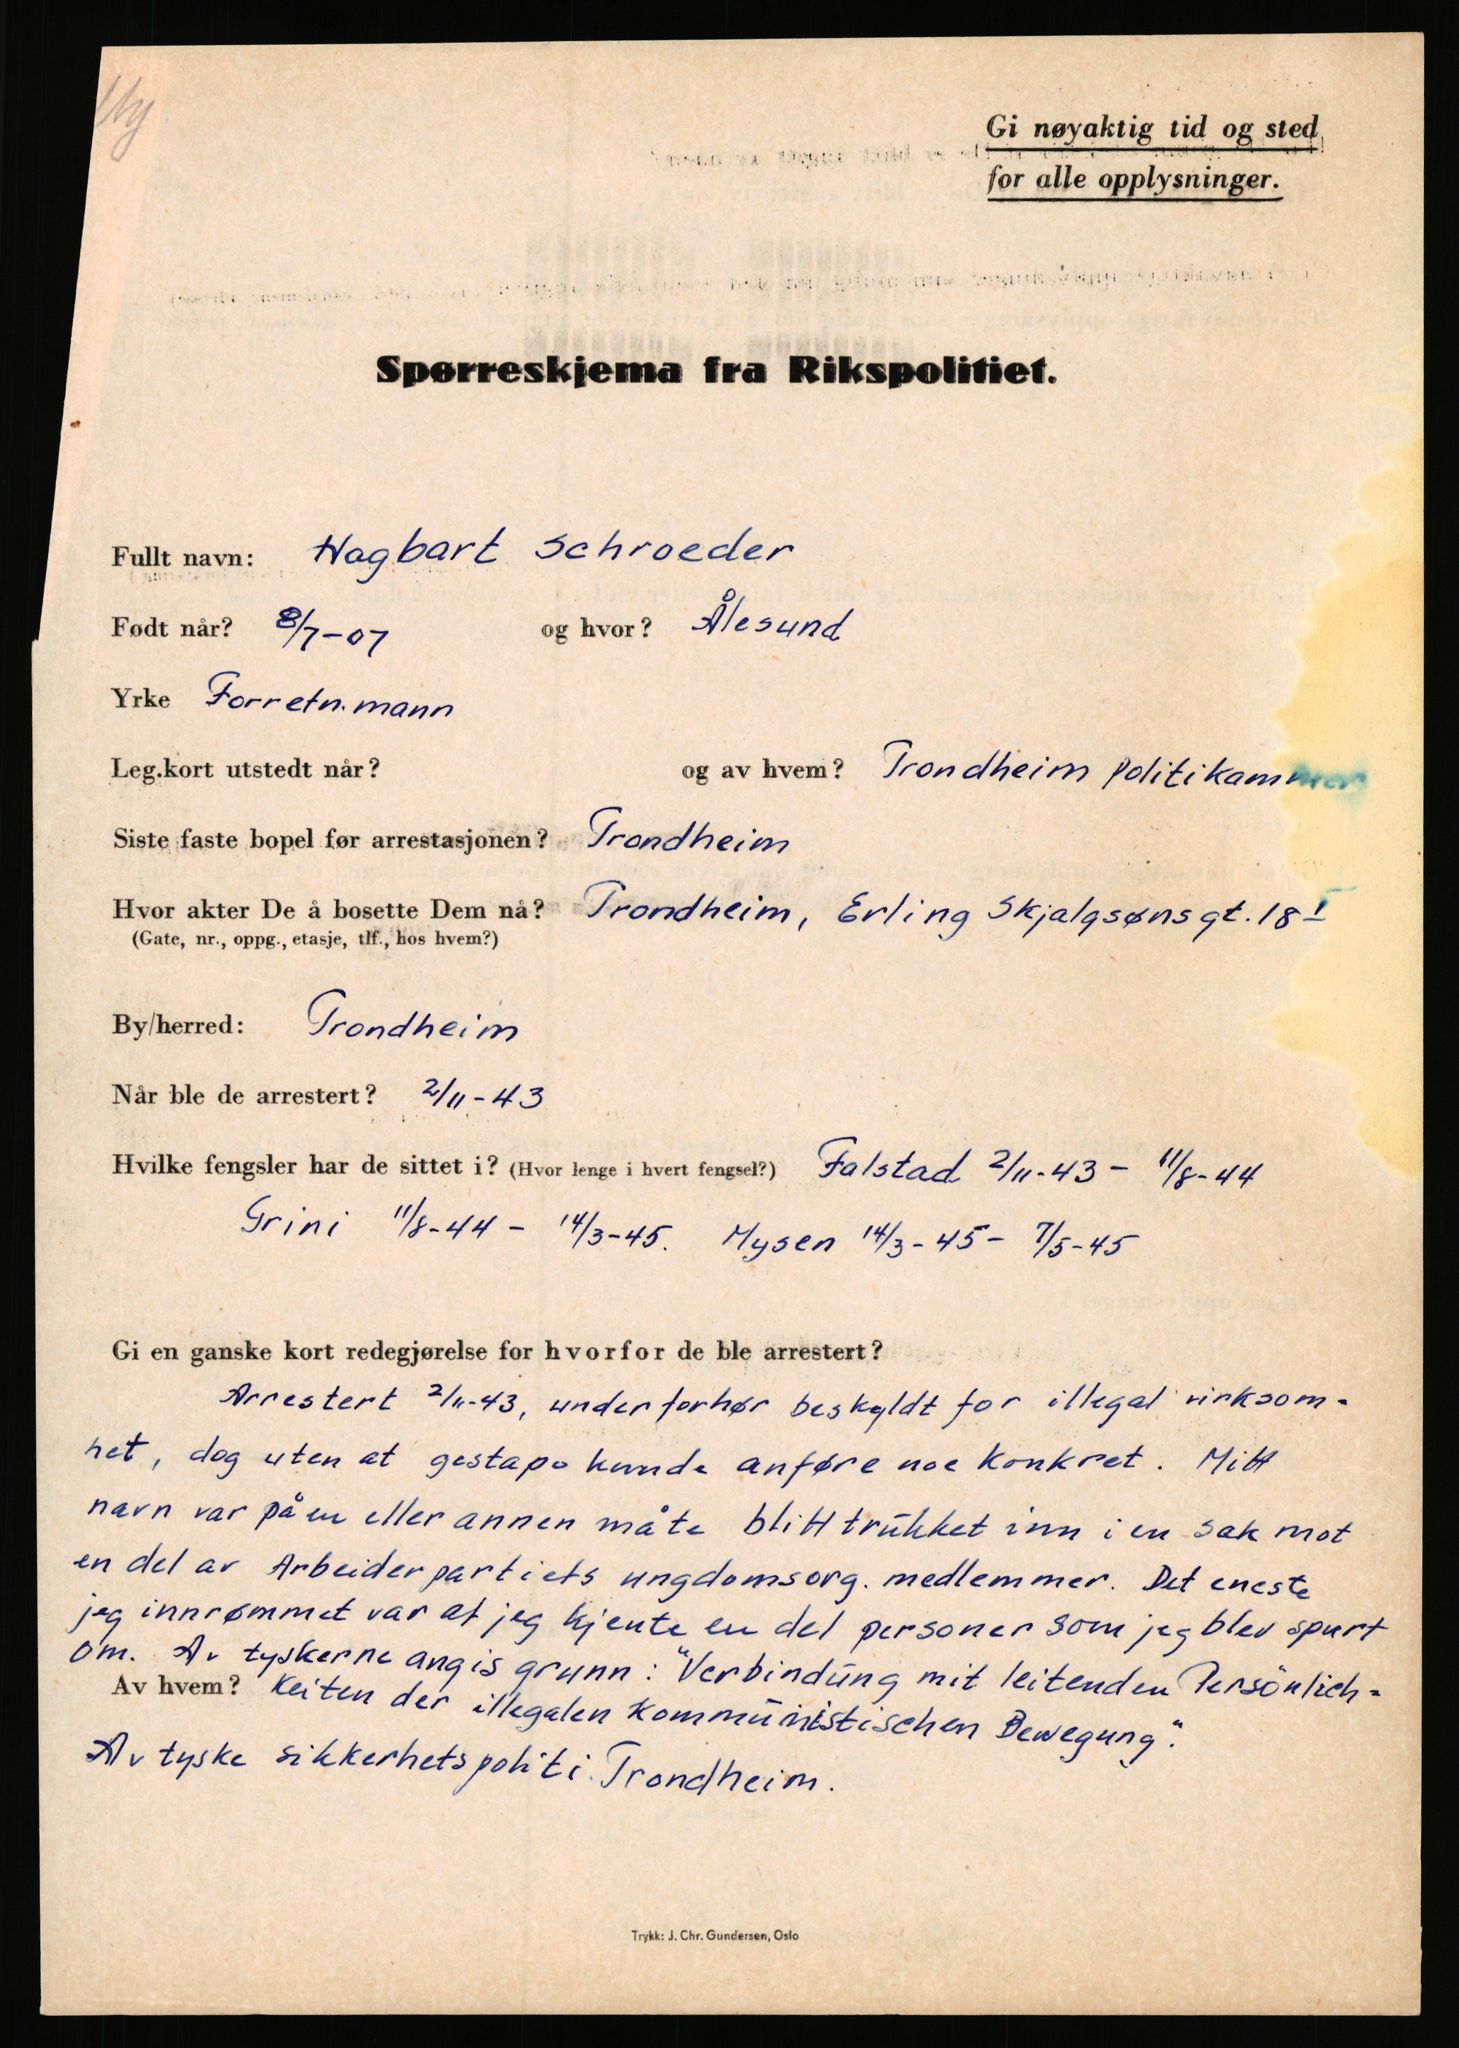 Gi nøyaktig tid og sted
for alle opplysninger.
Spørreskjema fra Rikspolitiet.
Fullt navn: Hagbart Schroeder
Født når? 8/7-07 og hvor? Ålesund
Yrke Forretn.mann
Leg.kort utstedt når? og av hvem? Trondheim politikammer
Siste faste bopel før arrestasjonen? Trondheim
Hvor akter De å bosette Dem nå? Trondheim, Erling Skjalgsønsgt. 18 I
(Gate, nr., oppg., etasje, tlf., hos hvem?)
By/herred: Trondheim
Når ble de arrestert? 2/11-43
Hvilke fengsler har de sittet i? (Hvor lenge i hvert fengsel?) Falstad 2/11-43 - 11/8-44
Grini 11/8-44 - 14/3-45. Mysen 14/3-45 - 7/5-45
Gi en ganske kort redegjørelse for hvorfor de ble arrestert?
Arrestert 2/11-43, under forhør beskyldt for illegal virksom-
het, dog uten at gestapo kunde anføre noe konkret. Mitt
navn var på en eller annen måte blitt trukket inn i en sak mot
en del av Arbeiderpartiets ungdomsorg. medlemmer. Det eneste
jeg innrømmet var at jeg kjente en del personer som jeg blev spurt
om. Av tyskerne angis grunn: "Verbindung mit leitenden Persönlich-
Av hvem? keiten der illegalen kommunistischen Bewegung".
Av tyske sikkerhetspoliti Trondheim.
Trykk: J. Chr. Gundersen, Oslo